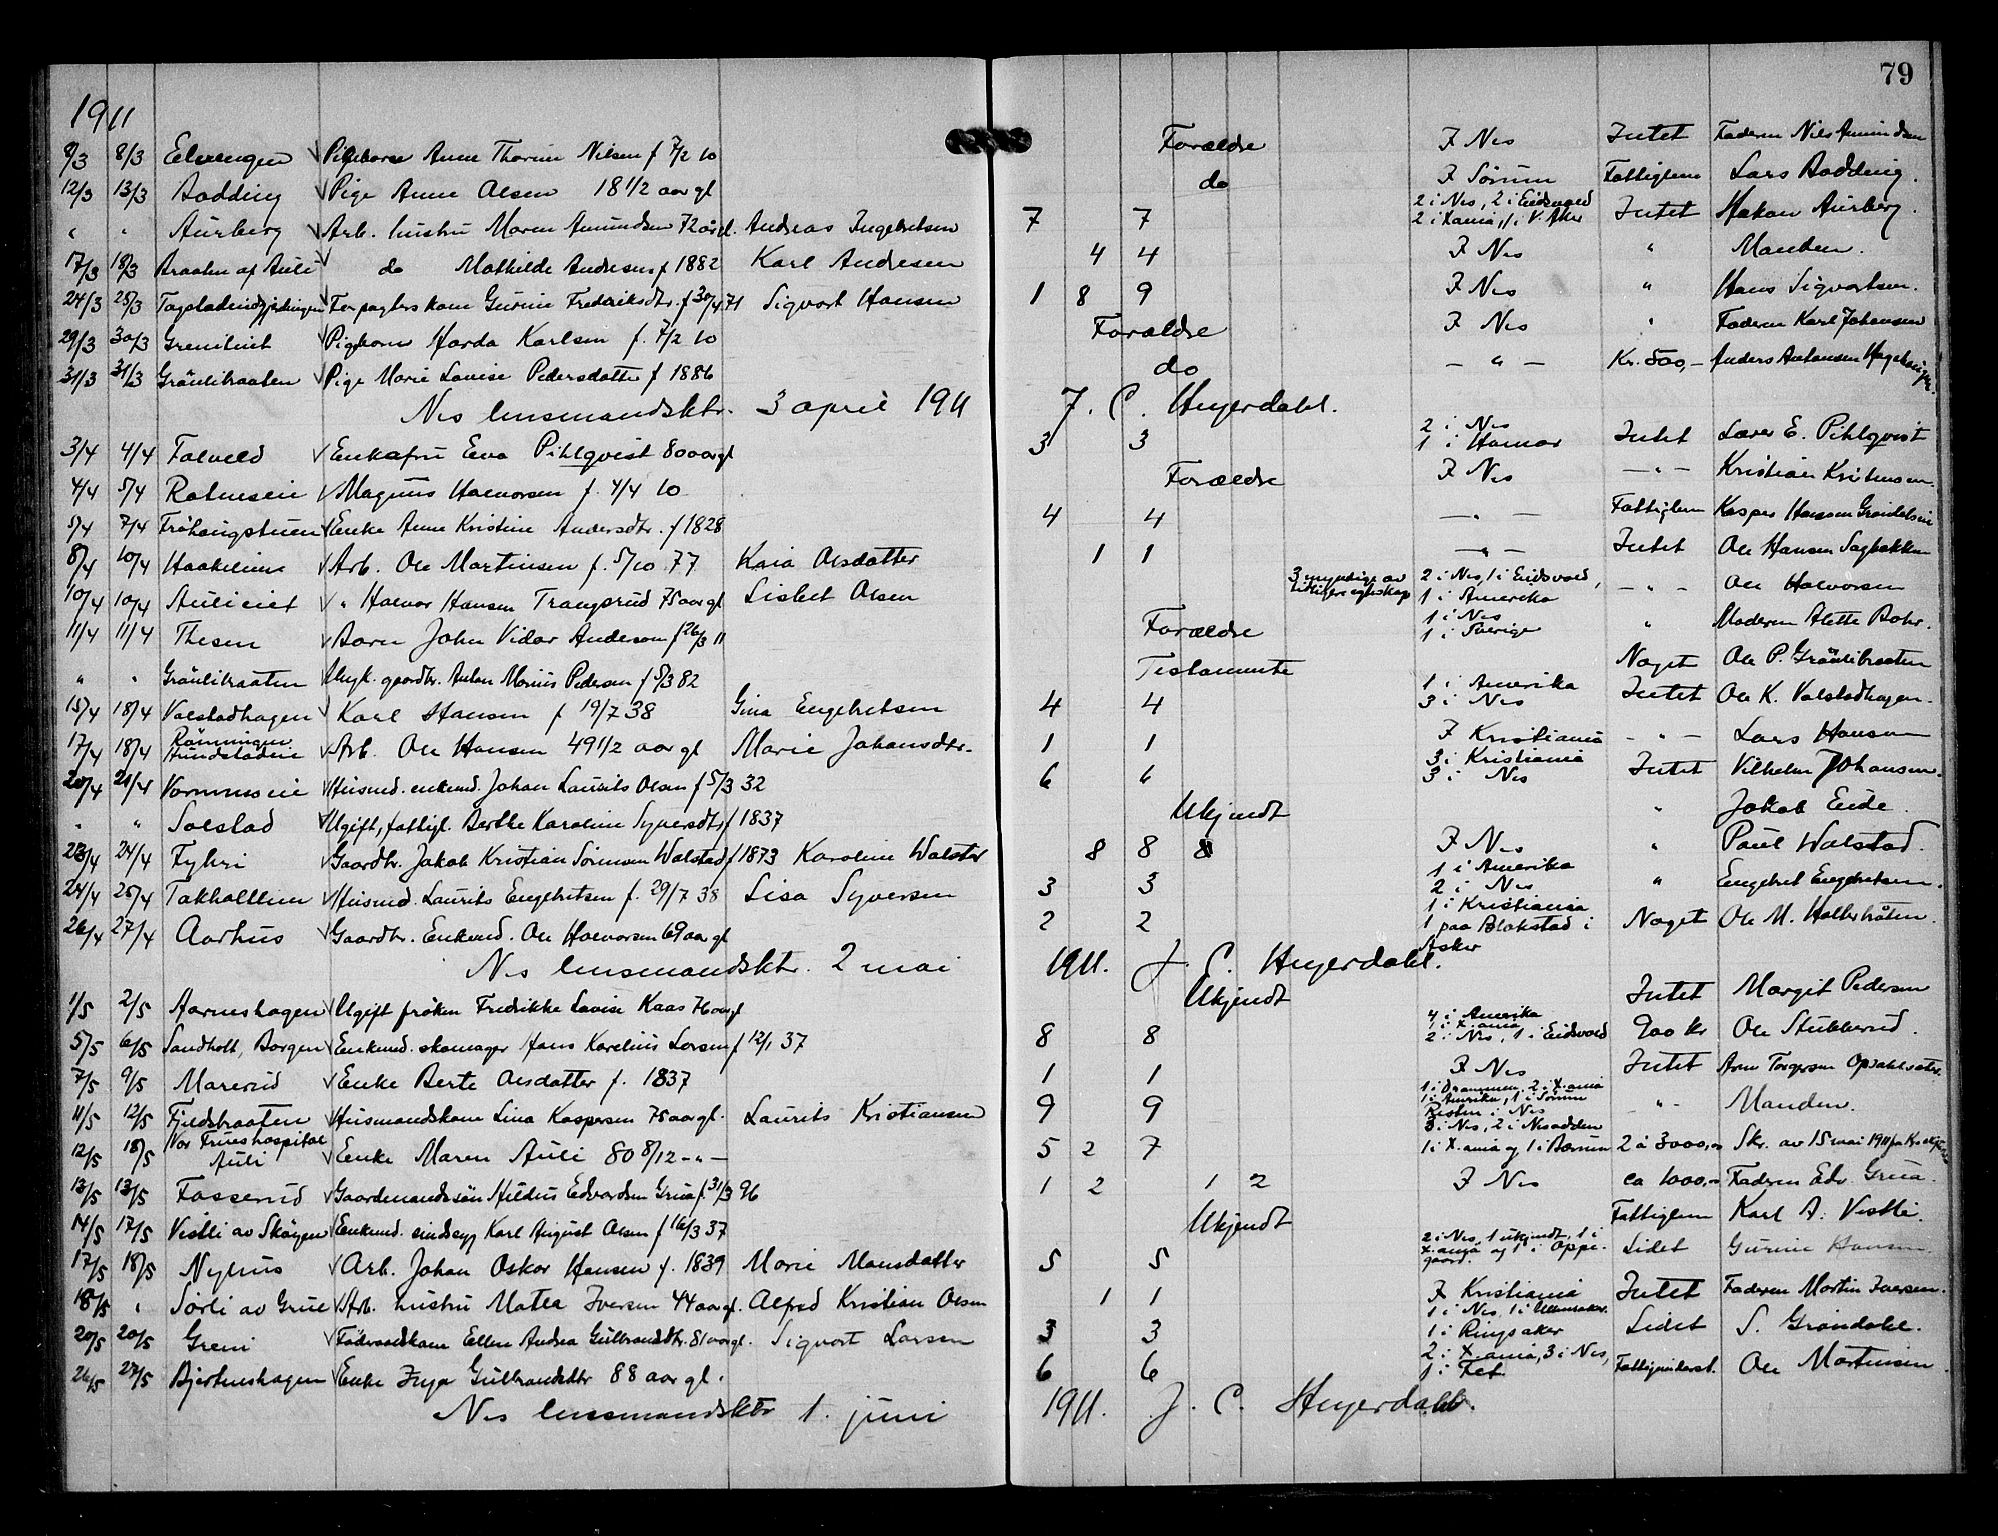 79
1911
9/3 8/3 Pikebarn Anne Thorine Nilsen f 7/2 10 Forældre I Nes Intet Faderen Nils Amundsen
12/3 13/3 Aodding Pige Anne Olsen 18 1/2 aar gl do I Sørum Fattiglem Lars Aodding.
" " Aurberg Arb. hustru Maren Amundsen 72 år gl. Andreas Ingebretsen 7 7 2 i Nes, 2 i Eidsvold 2 i Xania, 1 i V. Aker Intet Håkon Aurberg.
17/3 18/3 Braaten af Auli do Mathilde Andresen f 1882 Karl Andresen 4 4 I Nes " Manden.
24/3 25/3 Forpagters kone Gurine Frederiksdtr. f 30/4 71 Sigvart Hansen 1 8 9 I Nes " Hans Sigvartsen.
29/3 30/3 Pigebarn Harda Karlsen f. 7/2 10 Forældre I Nes " Faderen Karl Johansen
31/3 31/3 Gråulibraaten Pige Marie Lovise Pedersdatter f 1886 do — " — Kr. 500,- Anders Antonsen
Nes lensmandsktr. 3 april 1911 J. C. Heyerdahl.
3/4 4/4 Folveld Enkefru Eva Pihlqvist 80 aar gl 3 3 2 i Nes 1 i Hamar Intet Lærer E. Pihlqvist
4/4 5/4 Magnus Halvorsen f. 4/4 10 Forældre I Nes — " — Kristian Kristensen.
5/4 7/4 Frøhaugstuen Enke Anne Kristine Andersdtr. f 1828 4 4 — " — Fattiglem Kasper Hansen
8/4 10/4 Arb. Ole Martinsen f. 5/10 77 Kaia Olsdatter 1 1 — " — Intet Ole Hansen Sagbakken
10/4 10/4 Aulieiet " Halvor Hansen Trangsrud 75 aar gl Lisbet Olsen 3 myndige av tidligere egteskap 2 i Nes, 1 i Eidsvold, 1 i Amerika — " — Ole Halvorsen
11/4 11/4 Thesen Barn John Vidar Andersen f 26/3 11 Forældre 1 i Nes 1 i Sverige " Moderen Alette Bohr.
" " Gråulibraaten Ungk. gaardbr. Anton Marius Pedersen f 5/3 82 Testamente Noget Ole P. Gråulibraaten
15/4 18/4 Valstadhagen Karl Hansen f 19/7 38 Gina Engebretsen 4 4 1 i Amerika 3 i Nes Intet Ole K. Valstadhagen.
17/4 18/4 Rønningen Hundstadeie Arb. Ole Hansen 49 1/2 aar gl Marie Johansdtr. 1 1 I Kristiania — " — Lars Hansen
20/4 21/4 Vormnæseie Husmd. enkemd. Johan Laurits Olsen f 5/3 32 6 6 3 i Kristiania 3 i Nes Intet Vilhelm Johansen.
" " Solstad Ugift, fattigl. Berthe Karoline Syversdtr f 1837 Ukjendt " Jakob Eide.
23/4 24/4 Fyhri Gaardbr. Jakob Kristian Sørensen Walstad f 1873 Karoline Walstad 8 8 8 I Nes " Paul Walstad.
24/4 25/4 Takhallen Husmd. Laurits Engebretsen f. 29/7 38 Lisa Syversen 3 3 1 i Amerika 2 i Nes " Engebret Engebretsen.
26/4 27/4 Aarhus Gaardbr. Enkemd. Ole Halvorsen 69 aar gl 2 2 1 i Kristiania 1 paa Blakstad i Asker Noget Ole M.
Nes lensmandsktr. 2 mai 1911. J. C. Heyerdahl.
1/5 2/5 Aarneshagen Ugift frøken Fredrikke Lovise Kaas 76 aar gl Ukjendt Intet Margit Pedersen
5/5 6/5 Sandholt, Borgen Enkemd. skomager Hans Karelius Larsen f 12/1 37 8 8 4 i Amerika 1 i Xania 2 i Nes, 1 i Eidsvold 900 kr Ole Stubberud.
7/5 9/5 Marerud Enke Berte Olsdatter f. 1837 1 1 I Nes Intet Arne Torgersen Opsahl
11/5 12/5 Fjeldbraaten Husmandskone Lina Kaspersen 75 aar gl. Laurits Kristiansen 9 9 1 i Drammen, 2 i Xania 1 i Amerika, 1 i Sørum Resten i Nes — " — Manden.
12/5 18/5 Vor Frues hospital Auli Enke Maren Auli 80 8/12 — " — 5 2 7 3 i Nes, 2 i Nesodden 1 i Xania og 1 i Bærum 2 à 3000,00 Skr. av 15 mai 1911 fra
13/5 13/5 Fosserud Gaardmandssøn Hildus Edvardsen Grua f. 31/3 96 1 2 1 2 I Nes ca 1000,00 Faderen Edv. Grua.
14/5 17/5 Vestli av Skøyen Enkemd. sindssyg Karl August Olsen f 16/3 37 Ukjendt Fattiglem Karl A. Vestli.
17/5 18/5 Nyhus Arb. Johan Oskar Hansen f. 1839 Marie Monsdatter 5 5 2 i Nes, 1 ukjendt, 1 i Xania og 1 i Oppegaard. Lidet Gurine Hansen
18/5 " Sørli av Grue Arb. hustru Matea Iversen 44 aar gl. Alfred Kristian Olsen 1 1 I Kristiania Intet Faderen Martin Iversen.
20/5 20/5 Greni Føderaadskone Ellen Andrea Gulbrandsdtr. 81 aar gl. Sigvart Larsen 3 3 1 i Nes, 1 i Ullensaker 1 i Ringsaker Lidet S. Grøndahl.
26/5 27/5 Bjertneshagen Enke Inga Gulbrandsdtr 88 aar gl. 6 6 2 i Xania, 3 i Nes, 1 i Fet Fattigunderst. Ole Martinsen
Nes lensmandsktr 1. juni 1911. J. C. Heyerdahl.